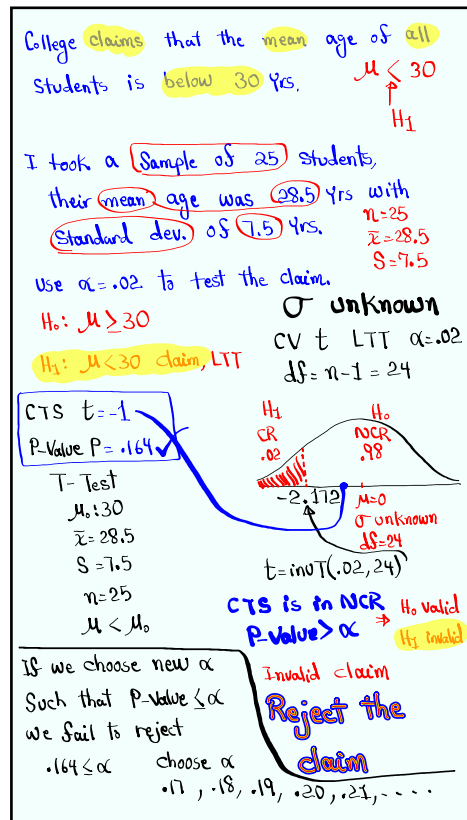 College claims that the mean age of all
Students is below 30 Yrs.
μ < 30
H₁
I took a Sample of 25 Students,
their mean age was 28.5 Yrs with
Standard dev. of 7.5 Yrs.
n=25
x̄=28.5
S=7.5
use α=.02 to test the claim.
H₀: μ ≥ 30
H₁: μ < 30 claim, LTT
σ unknown
CV t LTT α=.02
df= n-1 = 24
CTS t=-1
P-Value P= .164 ✓
H₁
CR
.02
H₀
NCR
.98
-2.172
μ=0
σ unknown
df=24
t=invT(.02,24)
T-Test
μ₀:30
x̄=28.5
S=7.5
n=25
μ<μ₀
CTS is in NCR
P-Value > α
⇒ H₀ Valid
H₁ invalid
Invalid claim
Reject the
claim
If we choose new α
Such that P-Value ≤ α
we fail to reject
.164 ≤ α
choose α
.17, .18, .19, .20, .21, ....